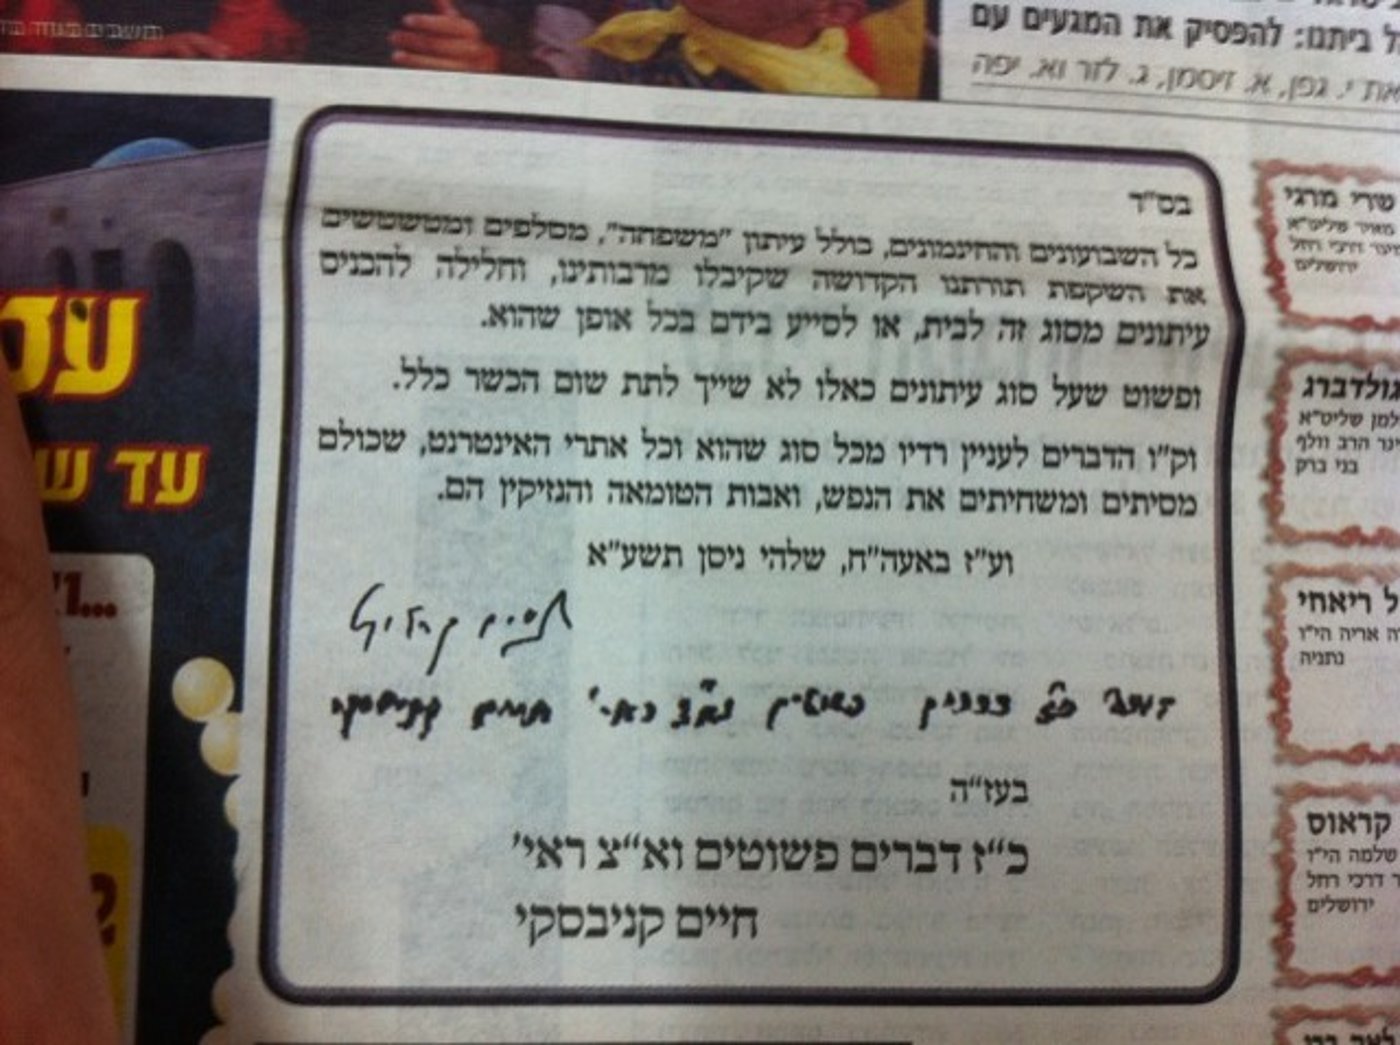 ל ביתנו: להפסיק את המגעים עם
את י. גפן, א. זיסמן, ג. לזר וא. יפה
בס"ד
כל השבועונים והחינמונים, כולל עיתון "משפחה", מסלפים ומטשטשים
את השקפת תורתנו הקדושה שקיבלו מרבותינו, וחלילה להכניס
עיתונים מסוג זה לבית, או לסייע בידם בכל אופן שהוא.
ופשוט שעל סוג עיתונים כאלו לא שייך לתת שום הכשר כלל.
וק"ו הדברים לענין רדיו מכל סוג שהוא וכל אתרי האינטרנט, שכולם
מסיתים ומשחיתים את הנפש, ואבות הטומאה והנזיקין הם.
וע"ז באעה"ח, שלהי ניסן תשע"א
בעז"ה
כ"ז דברים פשוטים וא"צ ראי'
חיים קניבסקי
עד ש
שרי מרגי
מאיר שליט"א
דרכי רחל
ירושלים
גולדברג
למן שליט"א
הרב וולף
בני ברק
ל ריאחי
ה אריה הי"ו
נתניה
קראוס
שלמה הי"ו
ר דרכי רחל
ירושלים